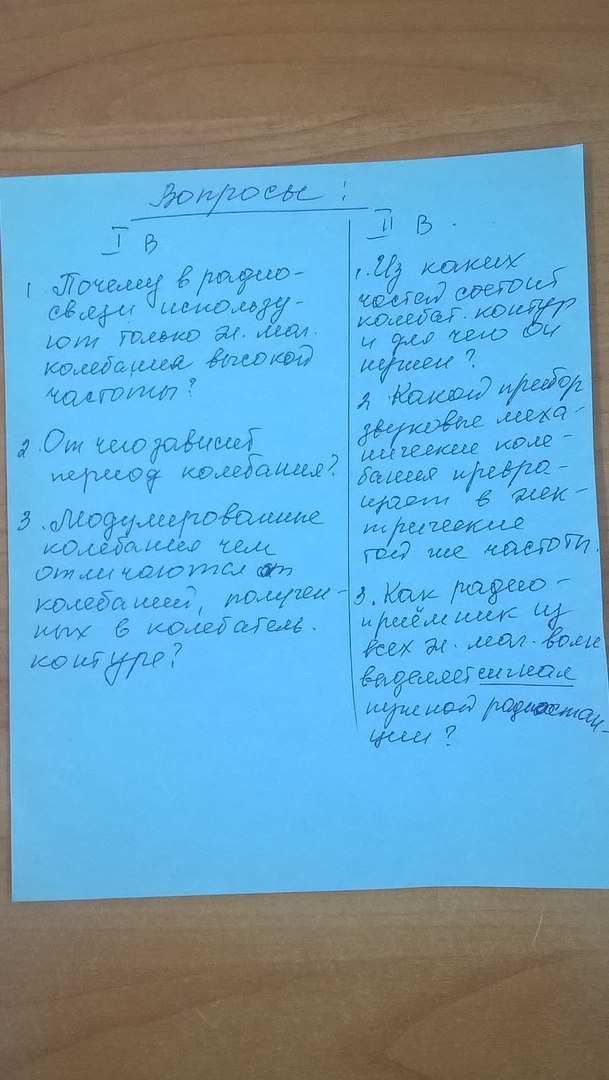 Вопросы:
I В
1 Почему в радио-
связи использу-
ют только эл. маг.
колебания высокой
частоты?
2. От чего зависит
период колебания?
3. Модулированные
колебания чем
отличаются от
колебаний, получен-
ных в колебатель.
контуре?
II В.
1. Из каких
частей состоит
колебат. контур
и для чего он
нужен?
2. Какой прибор
звуковые меха-
нические коле-
бания превра-
щает в элек-
трические
той же частоты.
3. Как радио-
приёмник из
всех эл. маг. волн
выделяет сигнал
нужной радиостан-
ции?